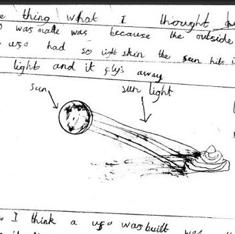 thing what I thought
was made was because the outside
ufo had so light skin the sun hits it
light and it flys away
sun
sun light
I think a ufo was built was